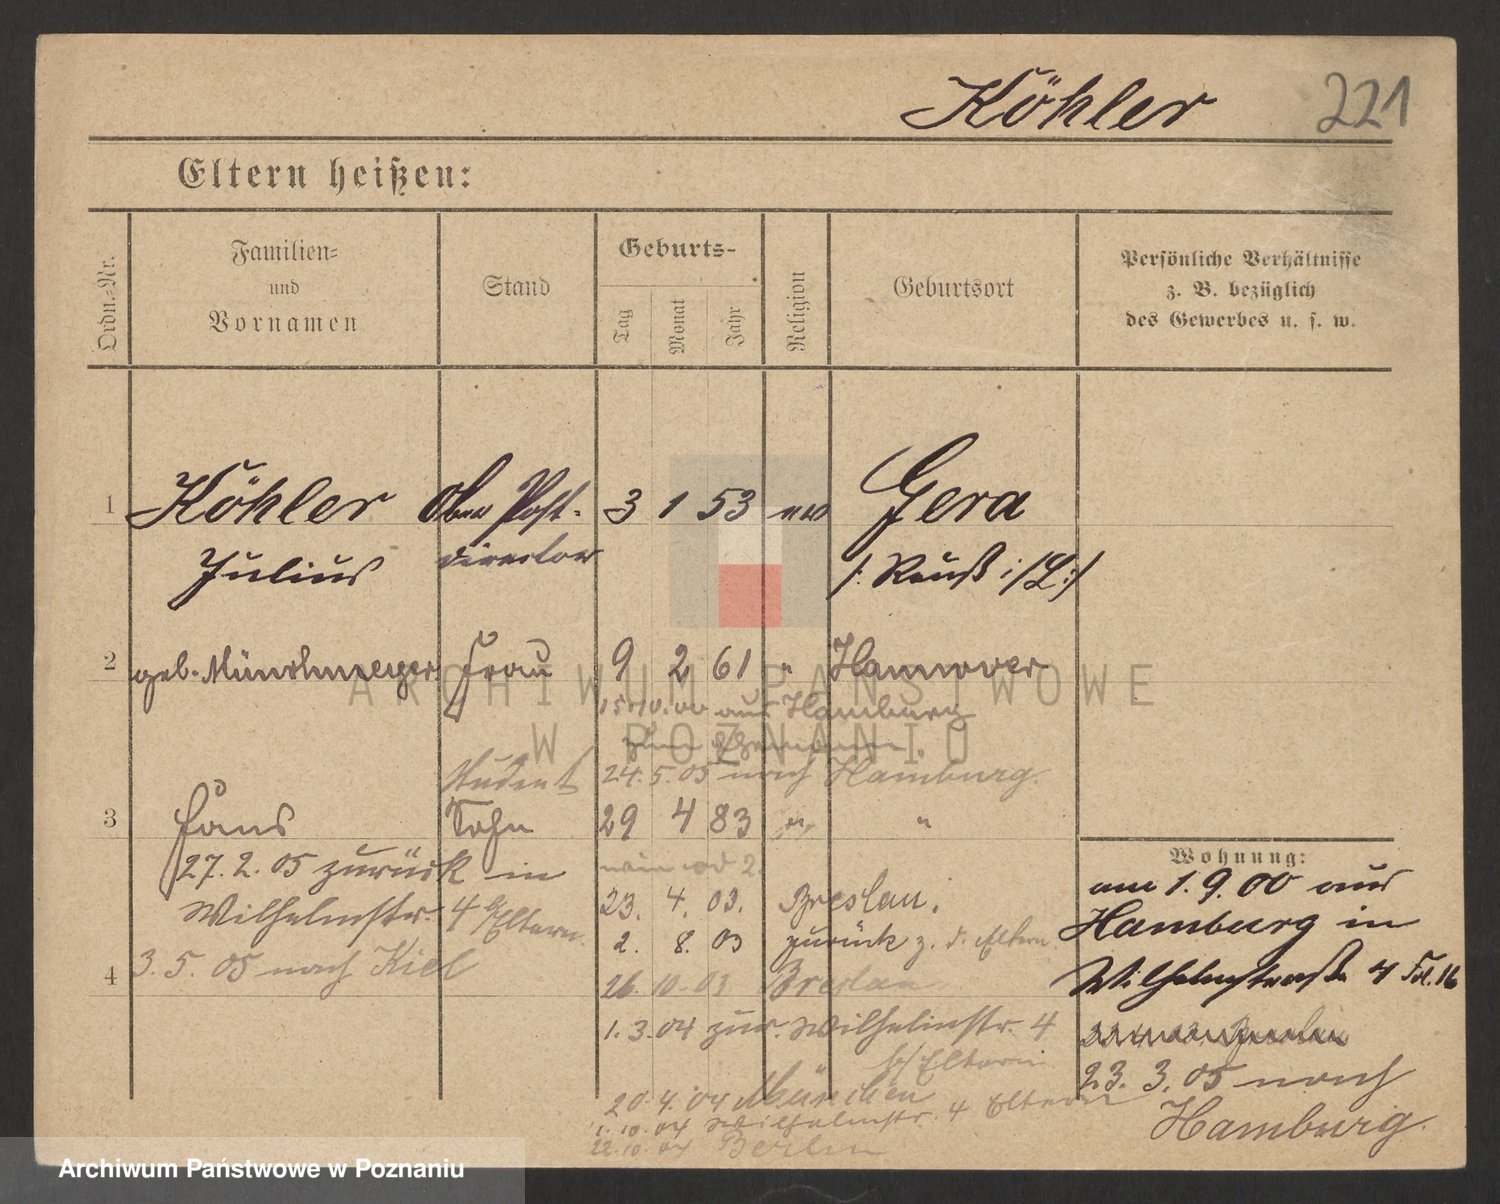 Köhler 221
Eltern heißen:
Ordn.-Nr.
Familien-
und
Vornamen
Stand
Geburts-
Tag
Monat
Jahr
Religion
Geburtsort
Persönliche Verhältnisse
z. B. bezüglich
des Gewerbes u. s. w.
1 Köhler Ober Post- 3 1 53 ev Gera
Julius director /: Reuß i/L :/
2 geb. Münchmeyer Frau 9 2 61 " Hannover
aus Hamburg
zum
Student 24. 5. 05 nach Hamburg.
3 Hans Sohn 29 4 83 "
27. 2. 05 zurück in
Wilhelmstr. 4 b/Eltern.
23. 4. 03. Breslau.
2. 8. 03 zurück z. d. Eltern
4 3. 5. 05 nach Kiel
26. 10. 03 Breslau
1. 3. 04 zur. Wilhelmstr. 4
b/Eltern
20. 4. 04 München
1. 10. 04 Wilhelmstr. 4 Eltern
22. 10. 04 Berlin
Wohnung:
am 1. 9. 00 aus
Hamburg in
Wilhelmstraße 4
23. 3. 05 nach
Hamburg.
ARCHIWUM PAŃSTWOWE
W POZNANIU
Archiwum Państwowe w Poznaniu